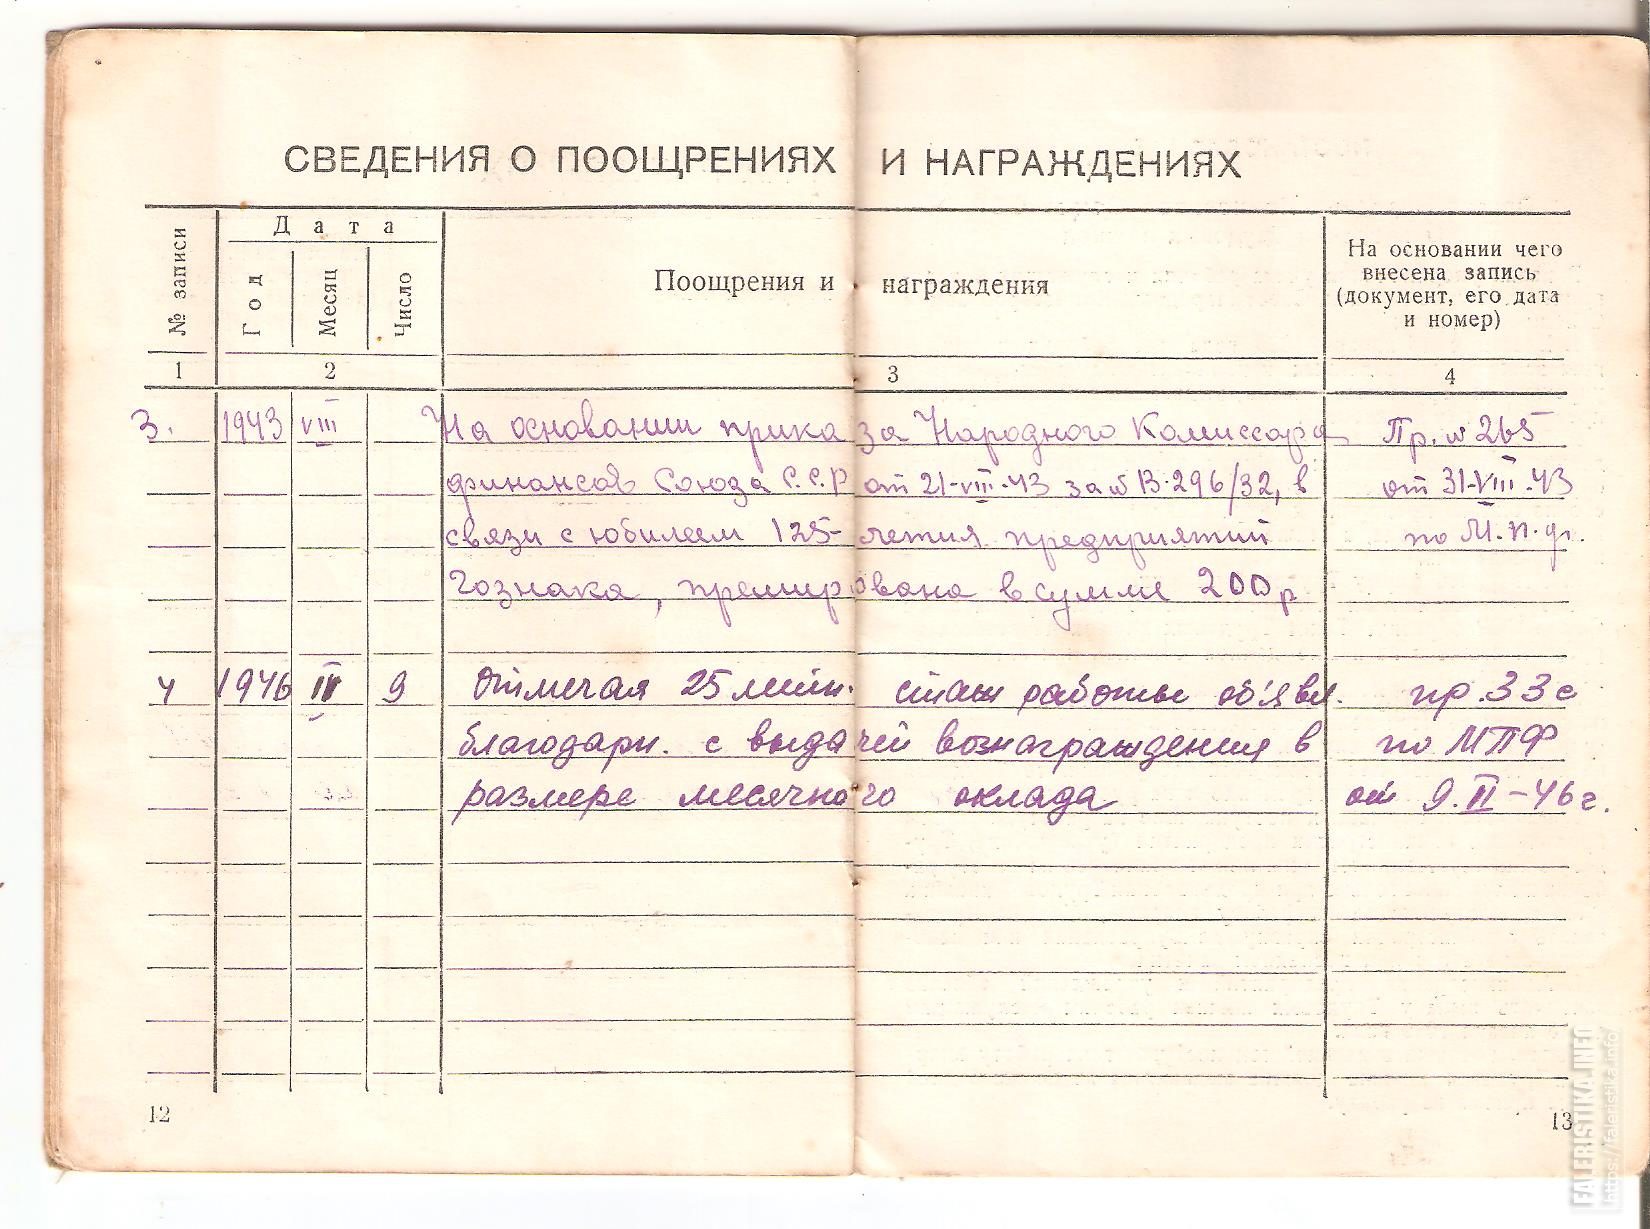 СВЕДЕНИЯ О ПООЩРЕНИЯХ И НАГРАЖДЕНИЯХ
№ записи
Дата
Год
Месяц
Число
Поощрения и награждения
На основании чего
внесена запись
(документ, его дата
и номер)
1 2 3 4
3. 1943 VIII На основании приказа Народного Комиссара Пр. № 265
финансов Союза С.С.Р от 21-VIII-43 за № В-296/32, в от 31-VIII-43
связи с юбилеем 125-летия предприятий по М.п.ф.
Гознака, премирована в сумме 200 р
4 1946 9 Отмечая 25 летн. стаж работы об'явл. пр. 33с
благодарн. с выдачей вознаграждения в по МПФ
размере месячного оклада от 9.II-46г.
12
13
FALERISTIKA.INFO
https://faleristika.info